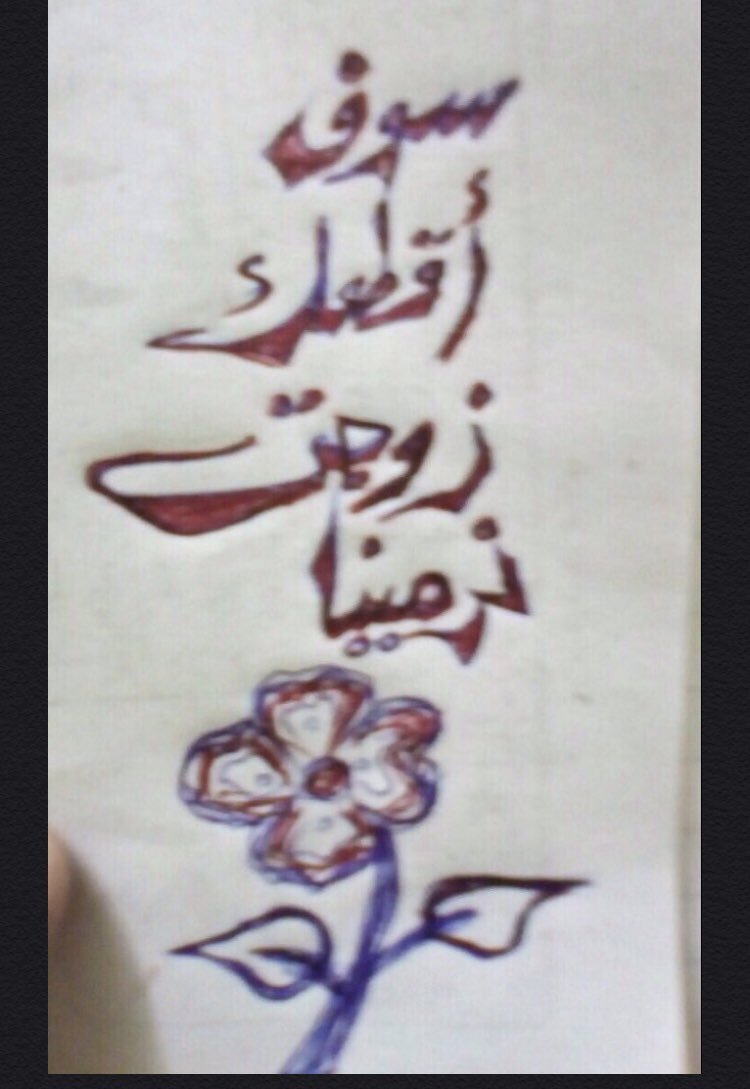 سوف
أقطعك
زوجتي
نرمينا